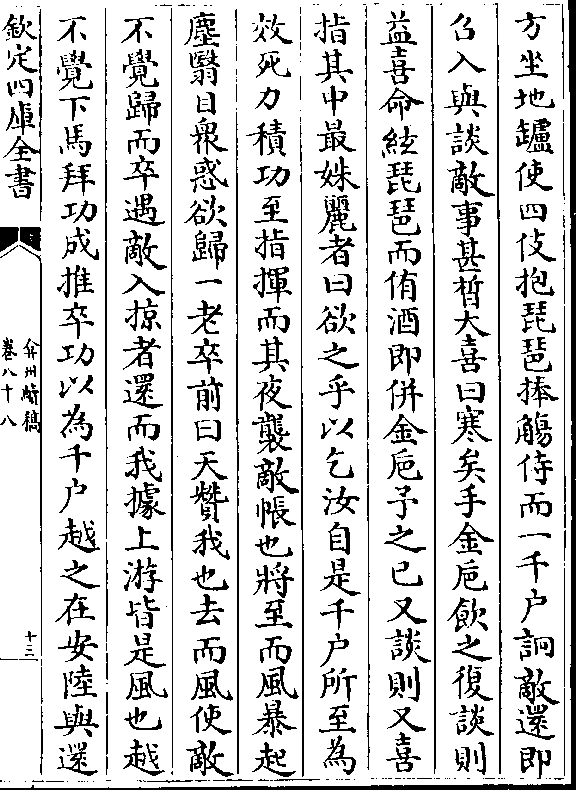 方坐地鑪使四伎抱琵琶捧觴侍而一千户詗敵還即
召入與談敵事甚晳大喜曰寒矣手金巵飲之復談則
益喜命絃琵琶而侑酒即併金巵予之已又談則又喜
指其中最姝麗者曰欲之乎以乞汝自是千户所至為
效死力積功至指揮而其夜襲敵帳也將至而風暴起
塵翳目衆惑欲歸一老卒前曰天贊我也去而風使敵
不覺歸而卒遇敵入掠者還而我據上游皆是風也越
不覺下馬拜功成推卒功以為千户越之在安陸與還
欽定四庫全書
弇州續稿
卷八十八
十三